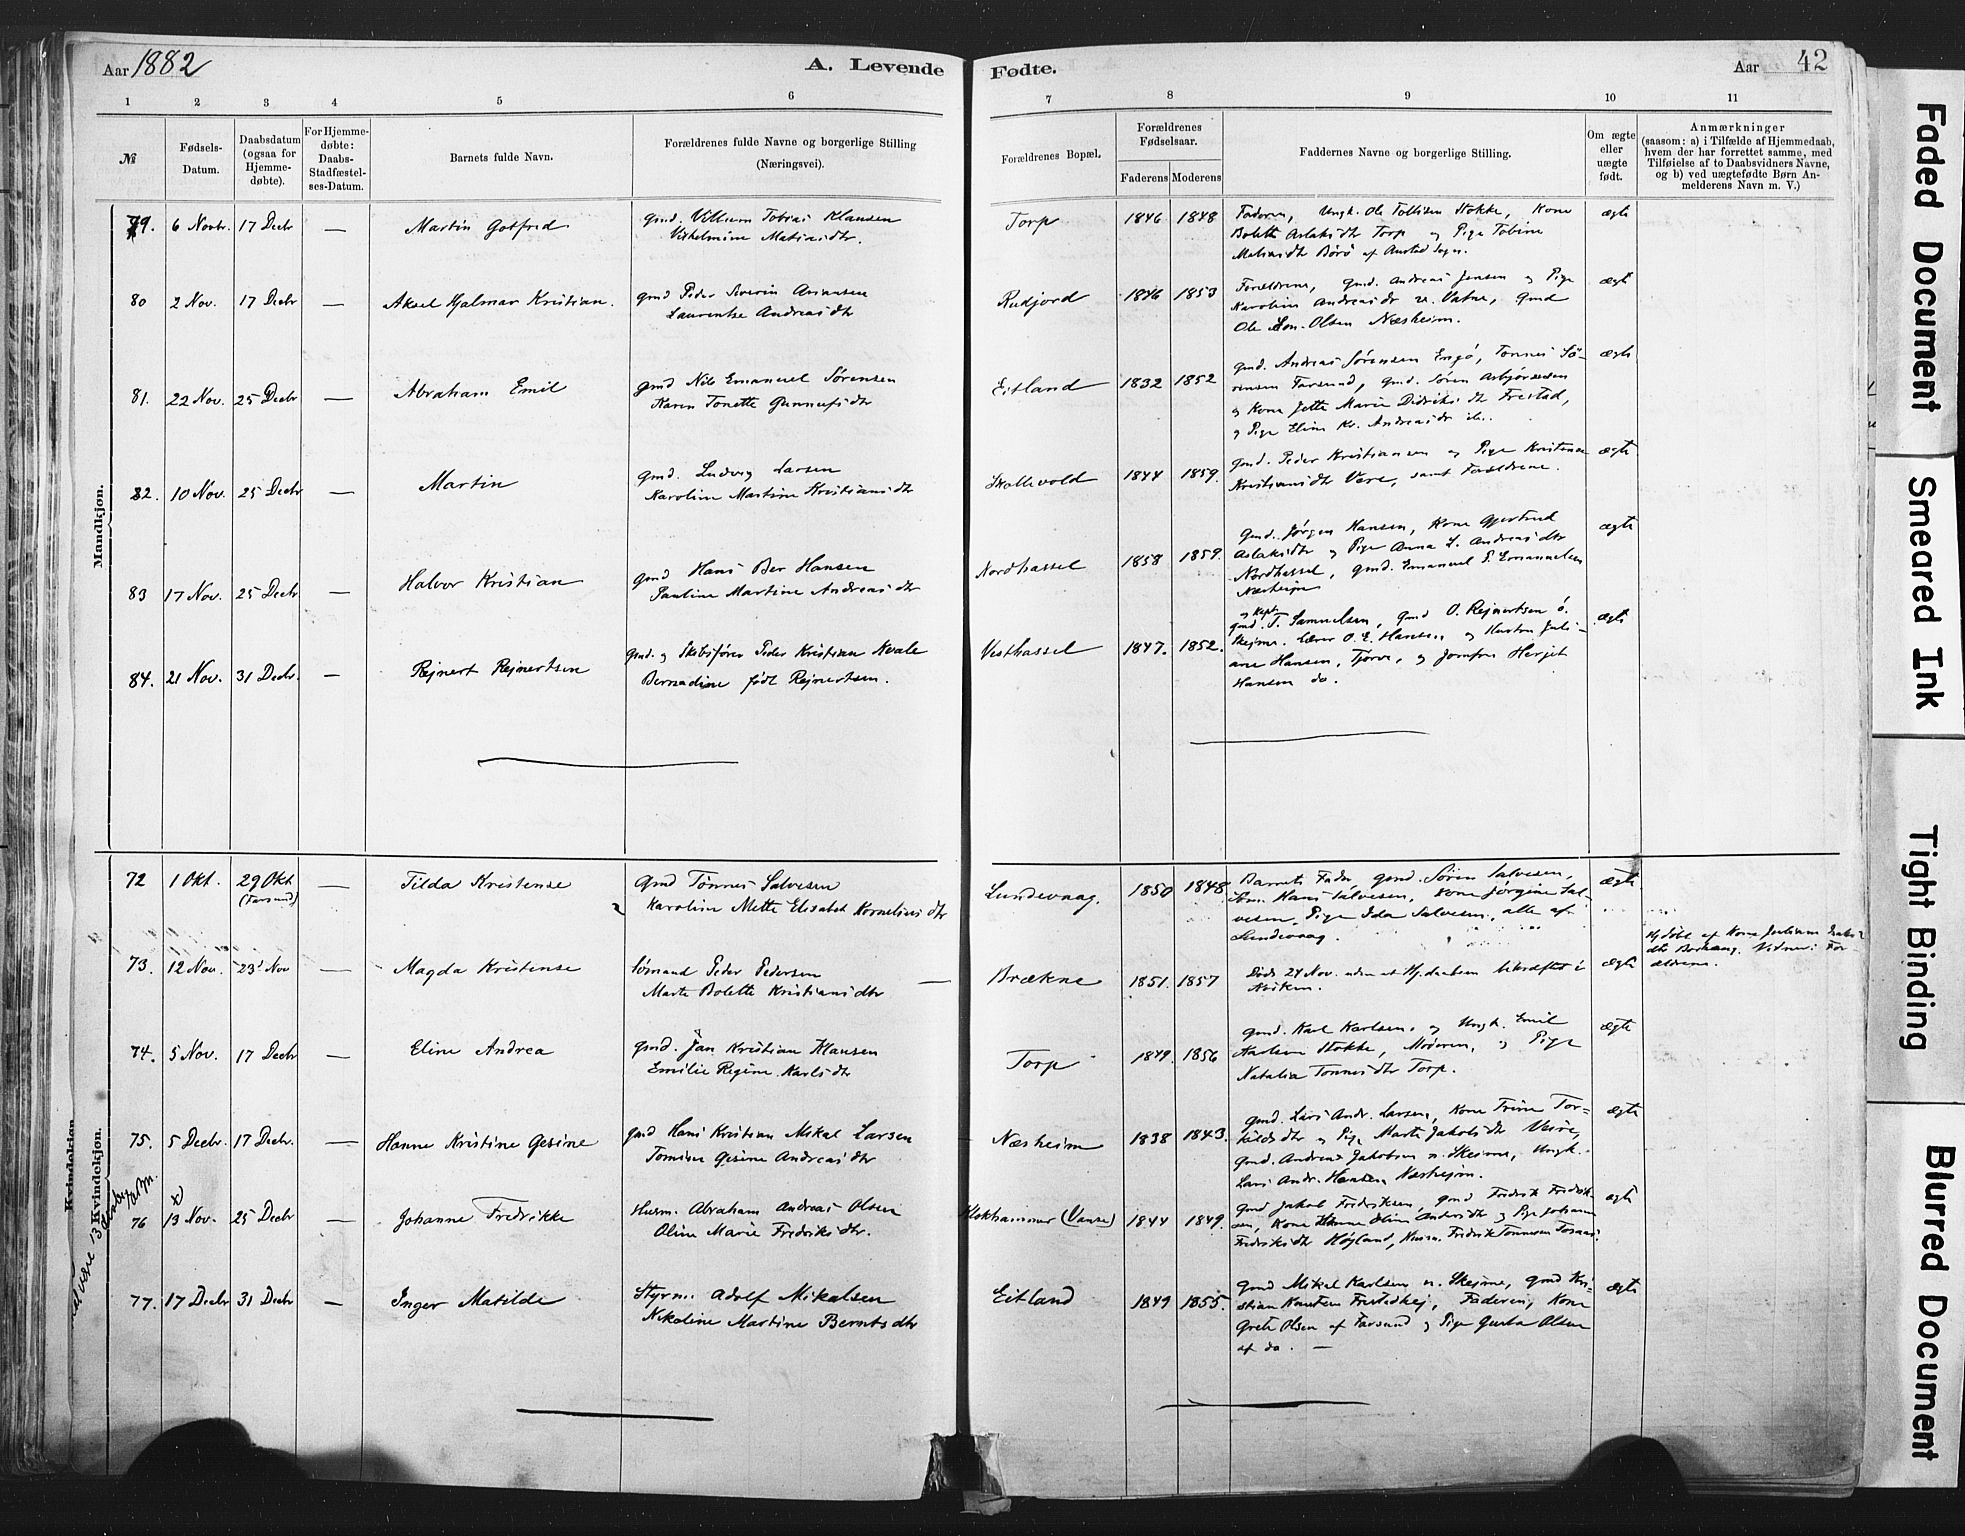 Aar 1882
A. Levende Fødte.
Aar 42
1 2 3 4 5 6 7 8 9 10 11
№
Fødsels-Datum.
Daabsdatum (ogsaa for Hjemme-døbte).
For Hjemme-døbte: Daabs-Stadfæstel-ses-Datum.
Barnets fulde Navn.
Forældrenes fulde Navne og borgerlige Stilling
(Næringsvei).
Forældrenes Bopæl.
Forældrenes Fødselsaar.
Faderens Moderens
Faddernes Navne og borgerlige Stilling.
Om ægte eller uægte født.
Anmærkninger
(saasom: a) i Tilfælde af Hjemmedaab,
hvem der har forrettet samme, med
Tilføielse af to Daabsvidners Navne,
og b) ved uægtefødte Børn An-
melderens Navn m. V.)
Mandkjøn.
79. 6 Novbr. 17 Decbr — Martin Gotfred
gmd. Villum Tobias Klausen
Vilhelmine Matiasdtr.
Torp 1846 1848
Faderen, Ungk. Ole Tollisen Stokke, Kone
Bolette Aslaksdtr Torp og Pige Tobine
Matiasdtr Børø af Austad Sogn.
ægte
80 2 Nov. 17 Decbr — Aksel Hjalmar Kristian.
gmd Peder Severin Ariansen
Laurentse Andreasdtr
Rudjord 1846 1853
Forældrene, gmd. Andreas Jensen og Pige
Karoline Andreasdr n. Vatne, gmd
Ole Olsen Næsheim.
ægte
81. 22 Nov. 25 Decbr — Abraham Emil
gmd Nils Emanuel Sørensen
Karen Tonette Gunnufsdtr
Eitland 1832 1852
gmd. Andreas Sørensen Engø, Tønnes Sö-
rensen Farsund, gmd. Søren Asbjørnsen
og Kone Jette Marie Didriksdtr Frestad,
og Pige Eline Kr. Andreasdr
ægte
82. 10 Nov. 25 Decbr — Martin
gmd. Ludvig Larsen
Karoline Martine Kristiansdtr
Skollevold 1844 1859.
gmd. Peder Kristiansen og Pige Kristense
Kristiansdtr Vere, samt Forældrene.
ægte
83 17 Nov. 25 Decbr — Halvor Kristian
gmd Hans Ber Hansen
Pauline Martine Andreasdtr
Nordhassel 1858 1859.
gmd. Jørgen Hansen, Kone Gjertrud
Aslaksdtr og Pige Anna L. Andreasdtr
Nordhassel, gmd. Emanuel P. Emanuelsen
Næsheim
ægte
84. 21 Nov. 31 Decbr. — Rejnert Rejnertsen
gmd. og Skibsfører Peder Kristian Kvale
Bernadine født Rejnertsen.
Vesthassel 1847. 1852.
og Kapt.
gmd. T. Samuelsen, gmd O. Rejnertsen ö.
Skejme. Lærer O. E. Hansen og Hustru Juli-
ane Hansen, Tjørve, og Jomfru Herjet
Hansen do.
ægte
Kvindekjøn.
72 1 Okt. 29 Okt (Farsund) — Tilda Kristense
gmd Tønnes Salvesen
Karoline Mette Elisabet Korneliusdtr
Lundevaag. 1850 1848.
Barnets Fader gmd. Sören Salvesen,
Hans Salvesen, Kone Jørgine Sal-
vesen, Pige Ida Salvesen, alle af
Lundevaag.
ægte
73. 12 Nov. 23 Nov — Magda Kristense
Sømand Peder Pedersen
Marte Bolette Kristiansdtr —
Brækne 1851. 1857
Døde 24 Nov. uden at Hj.daaben bekræftet i
Kirken.
ægte
Hj. døbt af Kone Juliane
Vidner: For-
ældrene.
74. 5 Nov. 17 Decbr — Eline Andrea
gmd. Jan Kristian Klausen
Emilie Regine Karlsdtr
Torp 1849. 1856
gmd. Karl Karlsen og Ungk. Emil
Karlsen Stokke, Moderen, og Pige
Natalia Tønnesdtr Torp.
ægte
75. 5 Decbr. 17 Decbr. — Hanne Kristine Gesine
gmd Hans Kristian Mikal Larsen
Tomine Gesine Andreasdtr
Næsheim 1838 1843.
gmd. Lars Andr. Larsen, Kone Trine Tor-
kildsdtr og Pige Marte Jakobsdtr Vere,
gmd. Andreas Jakobsen n. Skeime, Ungk.
Lars Andr. Hansen Næsheim.
ægte
76 13 Nov. 25 Decbr — Johanne Fredrikke
Husm. Abraham Andreas Olsen
Oline Marie Fredriksdtr.
Klokhammer (Vanse) 1844 1849.
gmd Jakob Fredriksen, gmd Fredrik Fredrik-
sen, Kone Hanne Eline Andersdtr og Pige Johanne
Fredriksdtr Høyland, Husm. Fredrik Tønnesen
ægte
77. 17 Decbr 31 Decbr — Inger Matilde
Styrm. Adolf Mikalsen
Nikoline Martine Berntsdtr
Eitland 1849 1855.
gmd Mikal Karlsen n. Skejme, gmd Kri-
stian Knutsen Frestadhej, Faderen, Kone
Grete Olsen af Farsund og Pige Gusta Olsen
af do. —
ægte
Faded Document
Smeared Ink
Tight Binding
Blurred Document